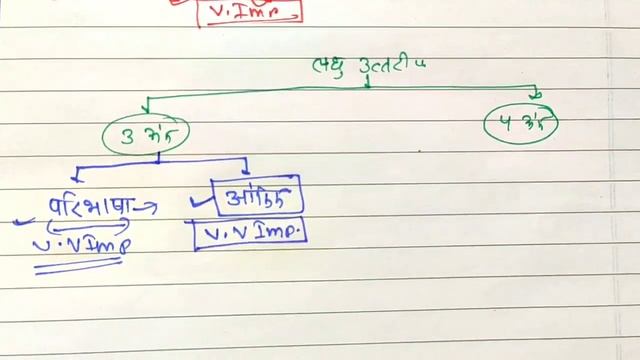 V. Imp
लघु उत्तरीय
3 अंक
५ अंक
परिभाषा →
V. V Imp
V. V Imp.